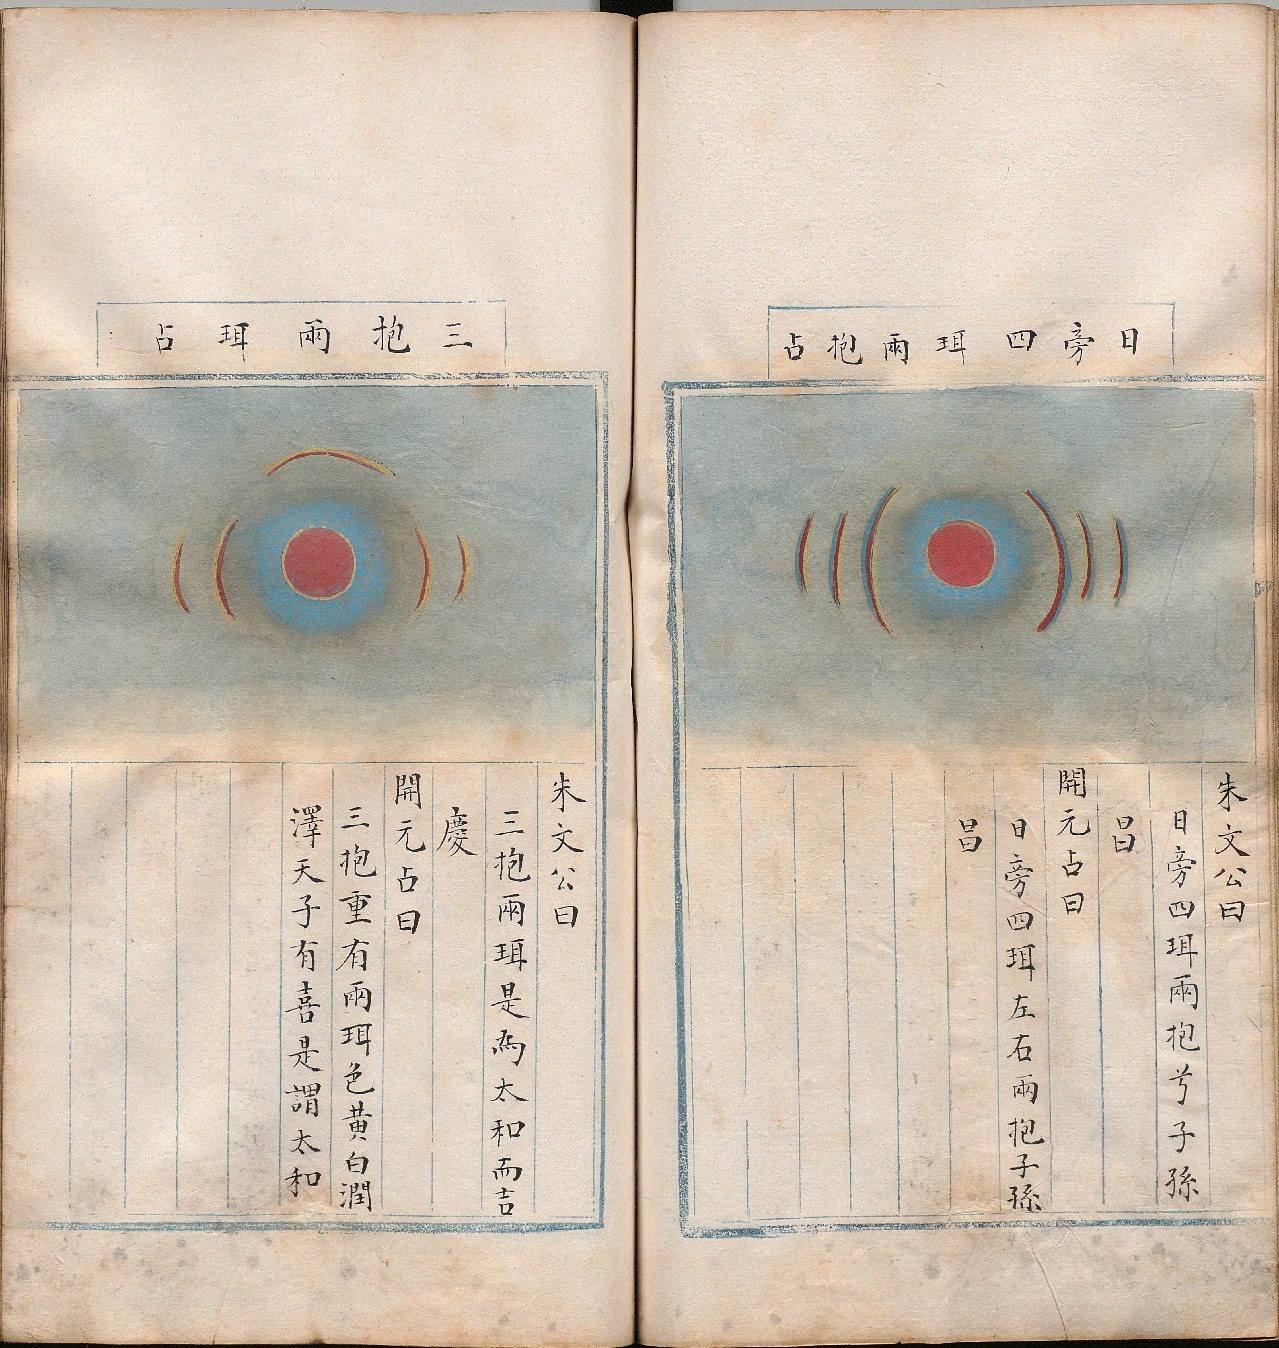 日旁四珥兩抱占
朱文公曰
日旁四珥兩抱兮子孫
昌
開元占曰
日旁四珥左右兩抱子孫
昌
三抱兩珥占
朱文公曰
三抱兩珥是為太和而吉
慶
開元占曰
三抱重有兩珥色黃白潤
澤天子有喜是謂太和